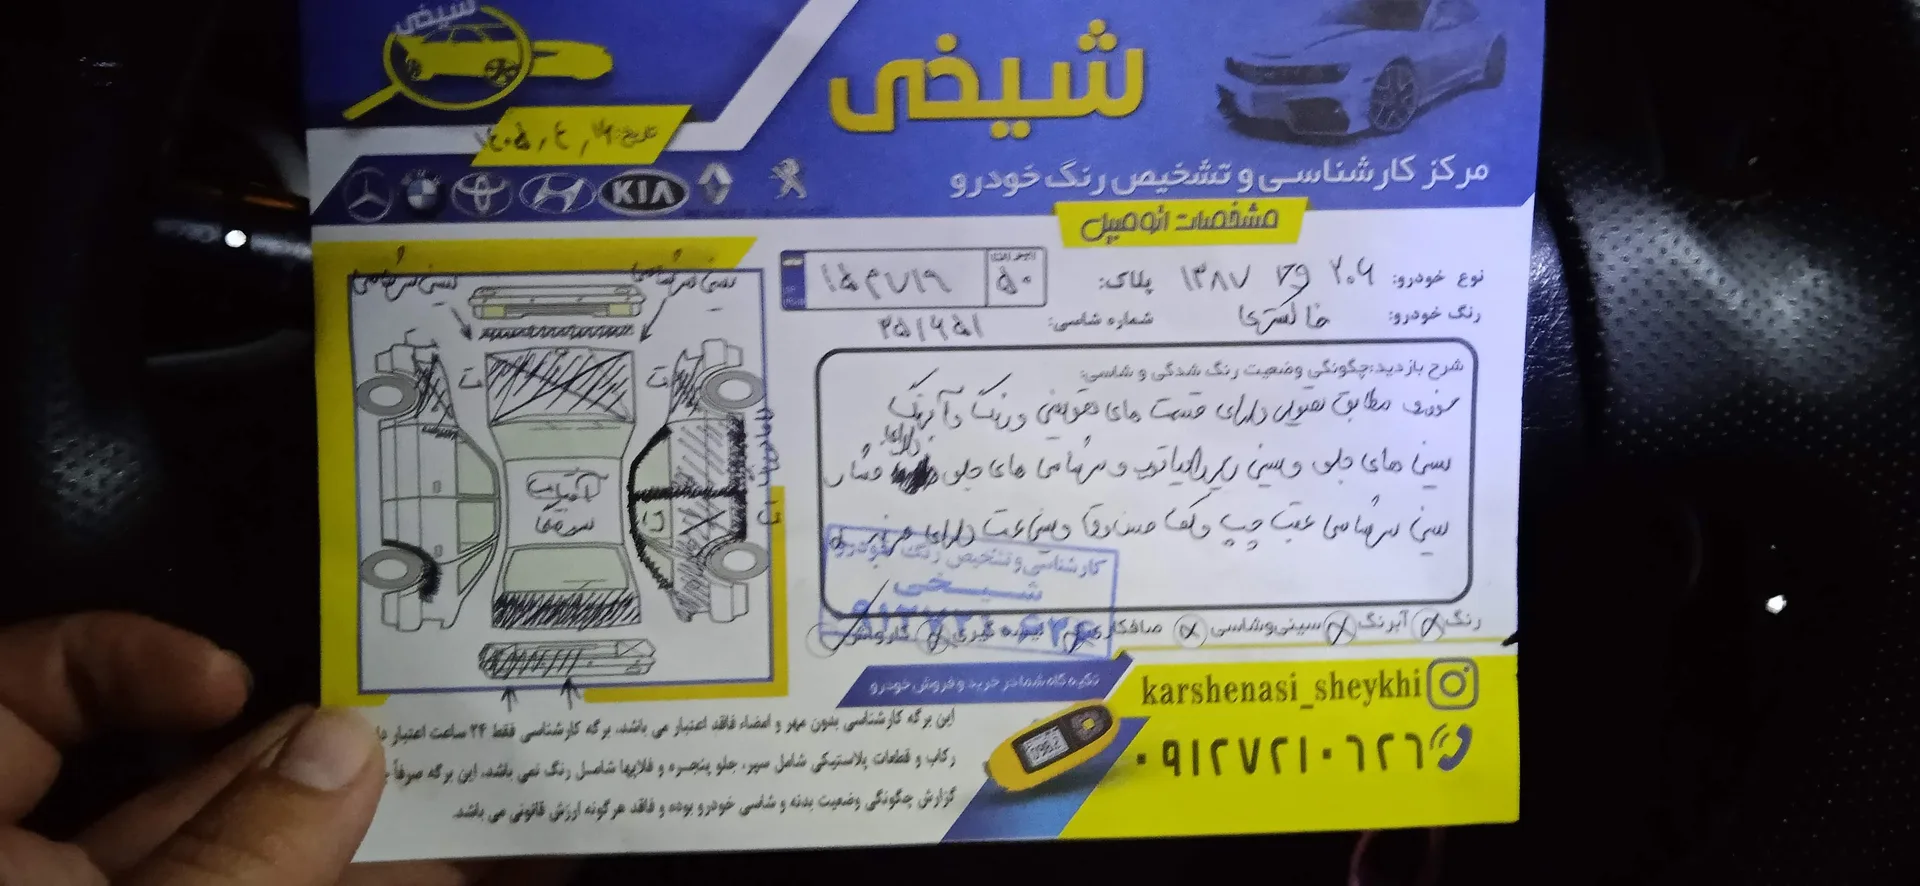 شیخی
شیخی
مرکز کارشناسی و تشخیص رنگ خودرو
تاریخ:
KIA
مشخصات اتومبیل
نوع خودرو: ۲۰۶ ۱۳۸۷ پلاک: ۵۰
رنگ خودرو: خاکستری شماره شاسی:
شرح بازدید:چگونگی وضعیت رنگ شدگی و شاسی:
خودرو مطابق تصویر دارای قسمت های تعویضی و رنگ و آبرنگ
سینی های جلو و سینی زیر رادیاتور و سرشاسی های جلو دارای فشار
سینی سرشاسی عقب چپ و کف صندوق و سینی عقب دارای ضربه
ت
ت
ت
آبرنگ
ستونها
کارشناسی و تشخیص رنگ خودرو
شیخی
رنگ آبرنگ سینی‌وشاسی صافکاری لیسه گیری کارواش
تکیه گاه شما در خرید و فروش خودرو
karshenasi_sheykhi
۰۹۱۲۷۲۱۰۶۲۶
این برگه کارشناسی بدون مهر و امضاء فاقد اعتبار می باشد، برگه کارشناسی فقط ۲۴ ساعت اعتبار
رکاب و قطعات پلاستیکی شامل سپر، جلو پنجره و فلاپها شامل رنگ نمی باشد، این برگه صرفاً
گزارش چگونگی وضعیت بدنه و شاسی خودرو بوده و فاقد هرگونه ارزش قانونی می باشد.